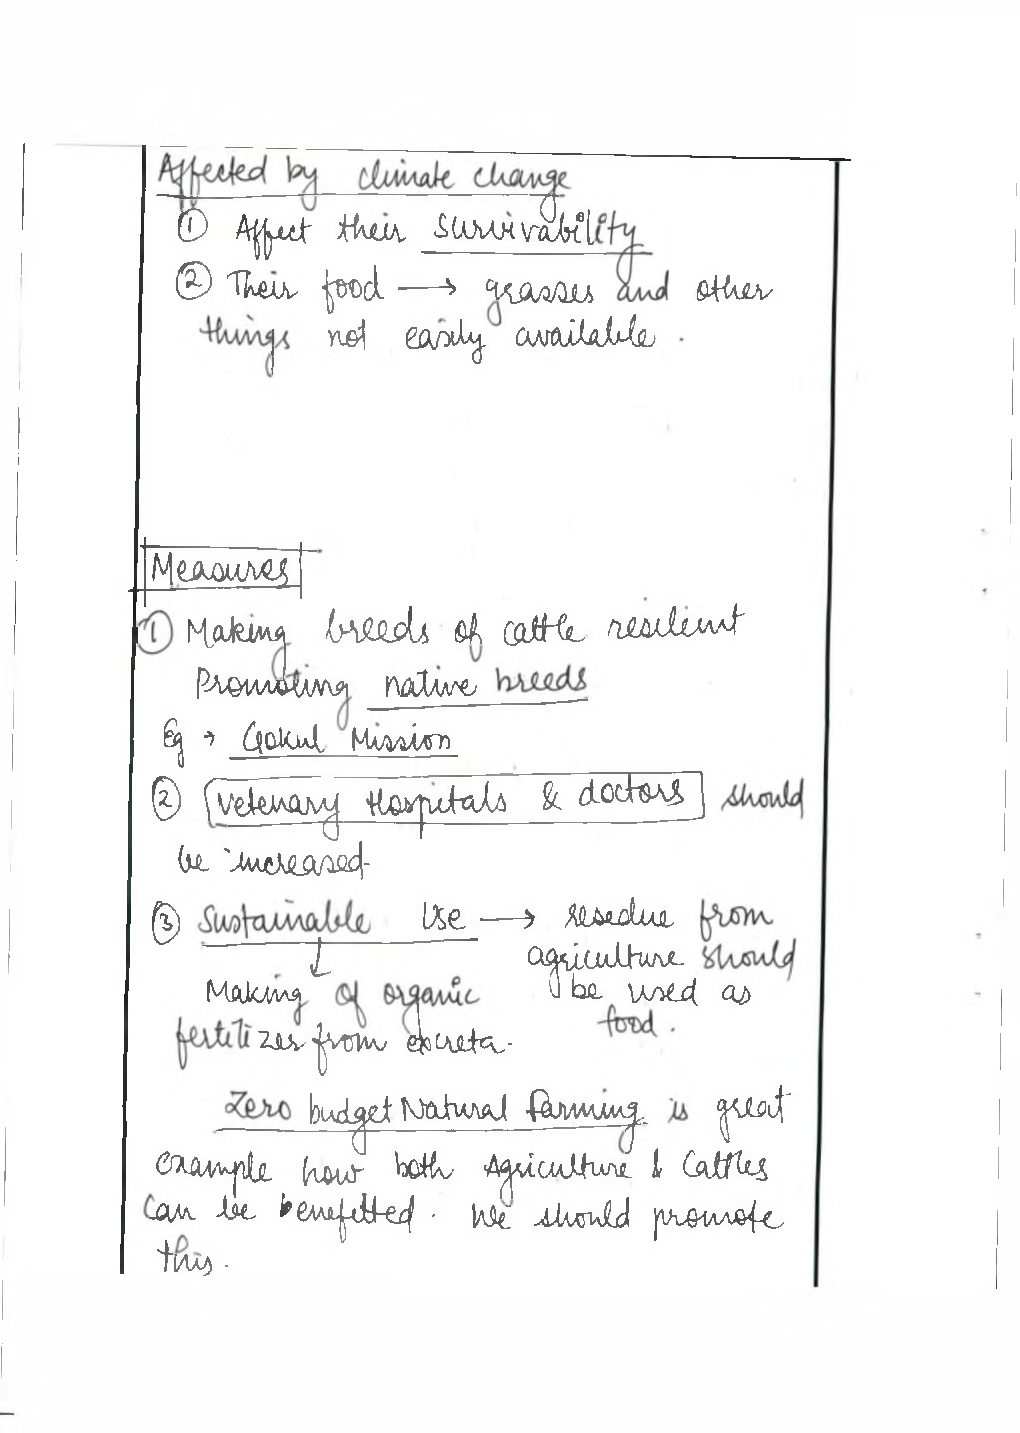 Affected by climate change
① Affect their survivability
② Their food → grasses and other
things not easily available.
Measures
① Making breeds of cattle resilient
Promoting native breeds
Eg → Gokul Mission
② Vetenary Hospitals & doctors should
be increased.
③ Sustainable Use → resedue from
agriculture should
be used as
food.
↓
Making of organic
fertilizer from excreta.
Zero budget Natural Farming is great
example how both Agriculture & Cattles
can be benefitted. We should promote
this.